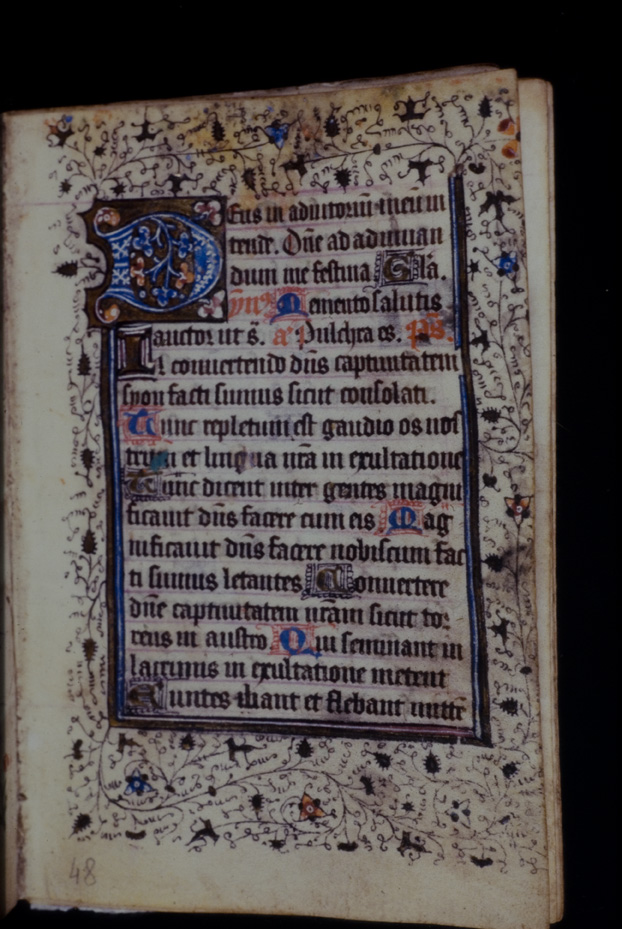 Deus in adiutoriū meum in
tende. Dn̄e ad adiuuan
dum me festina Gl̄a.
ymꝰ Memento salutis
auctor ut s̄. a᷎ Pulchra es. p̄s.
In conuertendo dn̄s captiuitatem
syon facti sumus sicut consolati.
Tunc repletum est gaudio os nos
trum et lingua nr̄a in exultatione
Tunc dicent inter gentes magni
ficauit dn̄s facere cum eis Mag
nificauit dn̄s facere nobiscum fac
ti sumus letantes Conuertere
dn̄e captiuitatem nr̄am sicut tor
rens in austro Qui seminant in
lacrimis in exultatione metent
Euntes ibant et flebant mittē
48